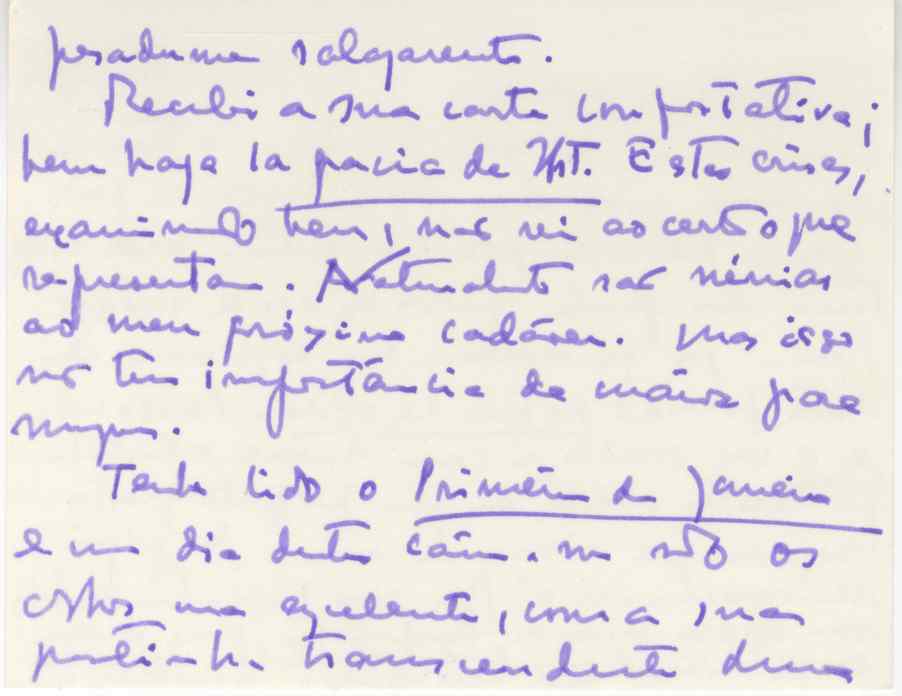 pesadume salgarento.
Recebi a sua carta confortativa;
bem haja la gracia de Hst. Estas crises,
examinando bem, não sei ao certo o que
representam. Naturalmente são nénias
ao meu próximo cadáver. Mas isso
não tem importância de maior para
ninguem.
Tenho lido o Primeiro de Janeiro
e um dia destes caiu-me sob os
olhos uma excelente, com a sua
pontinha transcendente duma